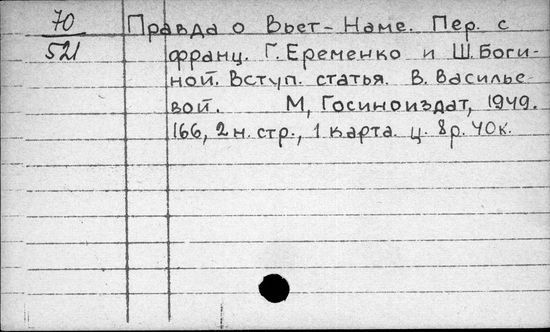 70 Правда о Вьет-Наме. Пер. с
521 франц. Г. Еременко и Ш. Боги-
ной. Вступ. статья. В. Василье-
вой. М, Госиноиздат, 1949.
166, 2 н. стр., 1 карта. ц. 8 р. 40 к.